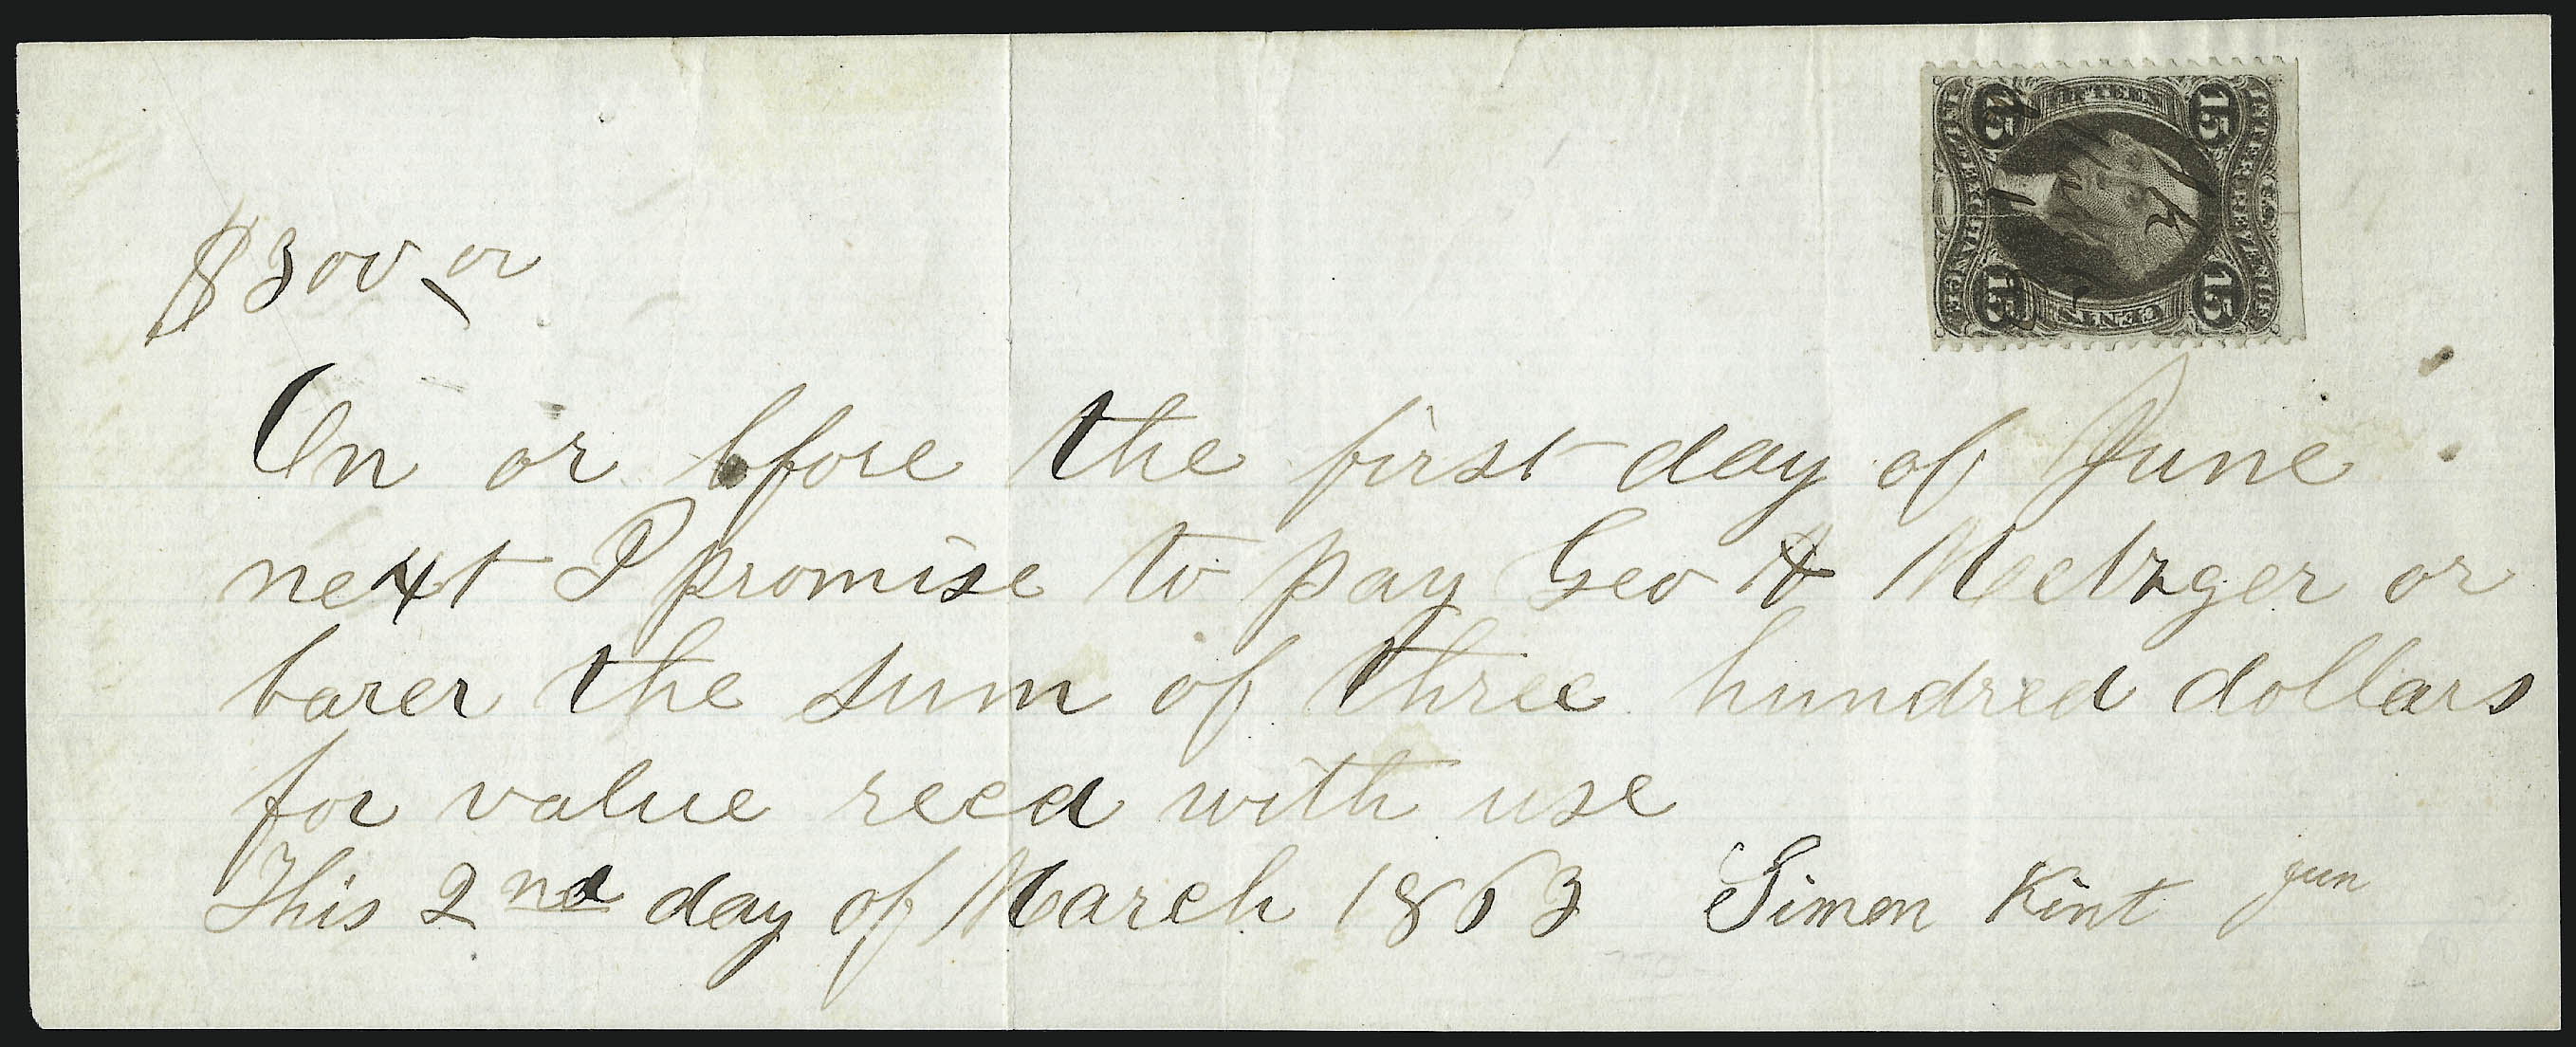 $300 00
On or bfore the first day of June
next I promise to pay Geo H Metzger or
barer the sum of three hundred dollars
for value recd with use
This 2nd day of March 1863 Simon Kint jun
15 FIFTEEN 15
INTER. REVENUE
INL. EXCHANGE
15 CENTS 15